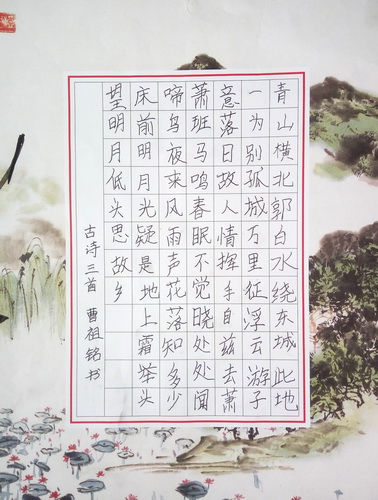 青山横北郭白水绕东城此地
一为别孤城万里征浮云游子
意落日故人情挥手自兹去萧
萧班马鸣春眠不觉晓处处闻
啼鸟夜来风雨声花落知多少
床前明月光疑是地上霜举头
望明月低头思故乡
古诗三首 曹祖铭书